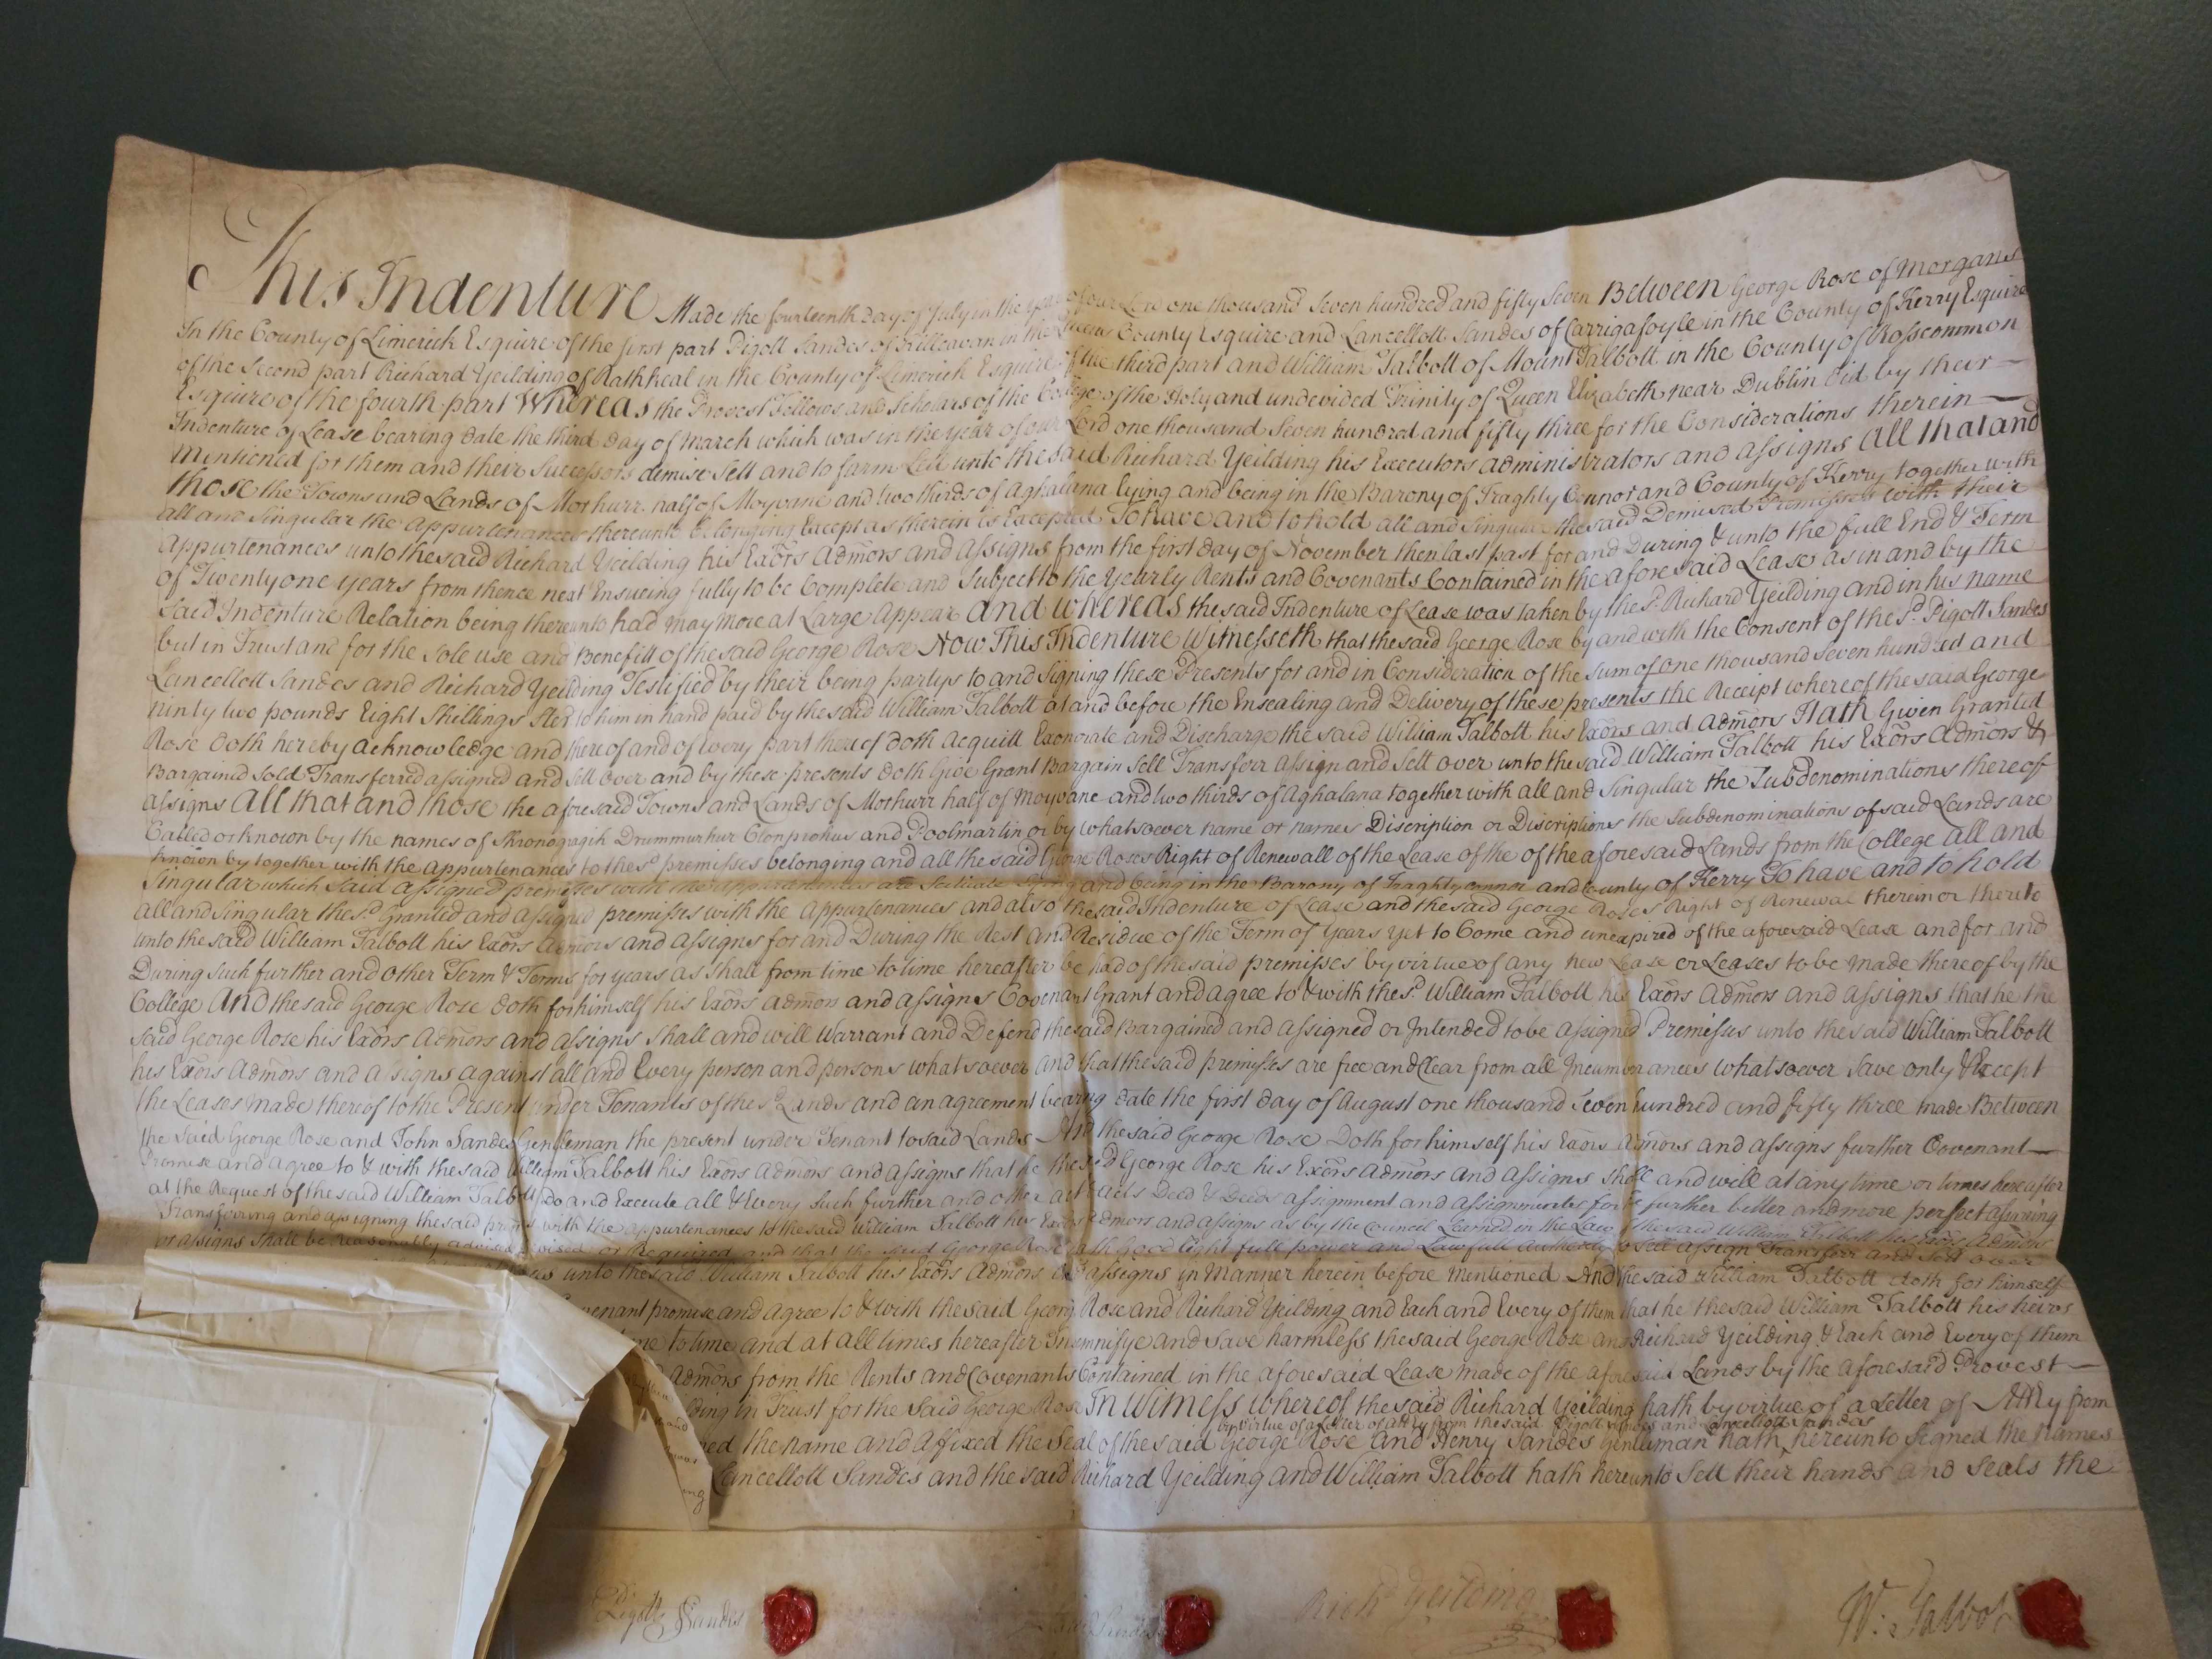 This Indenture Made the fourteenth Day of July in the Year of our Lord one thousand Seven hundred and fifty Seven Between George Rose of Morgans
In the County of Limerick Esquire of the first part Pigott Sandes of Killeavan in the Queens County Esquire and Lancellott Sandes of Carrigafoyle in the County of Kerry Esquire
of the Second part Richard Yeilding of Rathkeal in the County of Limerick Esquire of the third part and William Talbott of Mount Talbott in the County of Roscommon
Esquire of the fourth part Whereas the Provost Fellows and Scholars of the College of the Holy and undevided Trinity of Queen Elizabeth near Dublin did by their
Indenture of Lease bearing date the third day of March which was in the year of our Lord one thousand Seven hundred and fifty three for the Considerations therein
Mentioned for them and their Successors demise Sett and to farm Lett unto the said Richard Yeilding his Executors administrators and assigns All that and
those the Towns and Lands of Mothurr half of Moyvane and two thirds of Aghalana lying and being in the Barony of Traghty Connor and County of Kerry together with
all and Singular the appurtenances thereunto belonging Except as therein is Excepted To have and to hold all and Singular the said Demised Premisses with their
Appurtenances unto the said Richard Yeilding his Exōrs Admōrs and Assigns from the first day of November then last past for and During & unto the full End & Term
of Twenty one years from thence next Ensueing fully to be Complete and Subject to the Yearly Rents and Covenants Contained in the aforesaid Lease as in and by the
Said Indenture Relation being thereunto had may more at Large Appear and whereas the said Indenture of Lease was taken by the sd. Richard Yeilding and in his name
but in Trust and for the Sole use and Benefitt of the said George Rose Now This Indenture Witnesseth that the said George Rose by and with the Consent of the sd. Pigott Sandes
Lancellott Sandes and Richard Yeilding Testified by their being partys to and Signing these Presents for and in Consideration of the Sum of one thousand Seven hundred and
ninty two pounds Eight Shillings Ster to him in hand paid by the said William Talbott at and before the Ensealing and Delivery of these presents the Receipt whereof the said George
Rose doth hereby acknowledge and thereof and of every part thereof doth acquitt Exonerate and Discharge the said William Talbott his Exōrs and admōrs Hath Given Granted
Bargained Sold Transferred assigned and sett over and by these presents doth Give Grant Bargain Sell Transferr assign and sett over unto the said William Talbott his Exōrs Admōrs &
assigns All that and those the aforesaid Towns and Lands of Mothurr half of Moyvane and two thirds of Aghalana together with all and Singular the Subdenominations thereof
Called or known by the names of Drummurhur and Poolmartin or by whatsoever name or names Discription or Discriptions the Subdenominations of said Lands are
known by together with the appurtenances to the sd premisses belonging and all the said George Roses Right of Renewall of the Lease of the of the aforesaid Lands from the College all and
Singular which said assigned premisses with the appurtenances are Scituate lying and being in the Barony of Traghty connor and County of Kerry To have and to hold
all and Singular the sd. Granted and assigned premisses with the appurtenances and also the said Indenture of Lease and the said George Roses Right of Renewal therein or thereto
unto the said William Talbott his Exōrs Admōrs and assigns for and During the Rest and Residue of the Term of Years yet to Come and unexpired of the aforesaid Lease and for and
During such further and other Term & Terms for years as shall from time to time hereafter be had of the said premisses by virtue of any new Lease or Leases to be made thereof by the
College And the said George Rose doth for himself his Exōrs admōrs and assigns Covenant Grant and agree to & with the sd. William Talbott his Exōrs Admōrs and assigns that he the
said George Rose his Exōrs Admōrs and assigns shall and will Warrant and Defend the said Bargained and assigned or Intended to be assigned Premisses unto the said William Talbott
his Exōrs Admōrs and assigns against all and Every person and persons whatsoever and that the said premisses are free and Clear from all Incumbrances whatsoever save only & Except
the Leases made thereof to the Present under Tenants of the sd Lands and an agreement bearing date the first day of August one thousand Seven hundred and fifty three made Between
the said George Rose and John Sandes Gentleman the present under Tenant to said Lands And the said George Rose Doth for himself his Exōrs Admōrs and assigns further Covenant
Promise and agree to & with the said William Talbott his Exōrs Admōrs and assigns that he the said George Rose his Exōrs Admōrs and assigns shall and will at any time or times hereafter
at the Request of the said William Talbott Do and Execute all & Every such further and other act & acts Deed & Deeds assignment and assignments for the further better and more perfect assuring
Transferring and assigning the said premisses with the appurtenances to the said William Talbott his Exōrs Admōrs and assigns as by the Council Learned in the Law of the said William Talbott his Exōrs Admōrs
or assigns shall be reasonably advised devised or Required and that the said George Rose hath Good Right full power and Lawfull Authority to sell assign Transferr and sett over
unto the said William Talbott his Exōrs Admōrs and assigns in Manner herein before Mentioned And the said William Talbott doth for himself
Covenant promise and agree to & with the said George Rose and Richard Yeilding and Each and Every of them that he the said William Talbott his heirs
time to time and at all times hereafter Indemnifye and save harmless the said George Rose and Richard Yeilding & Each and Every of them
Admōrs from the Rents and Covenants Contained in the aforesaid Lease made of the aforesaid Lands by the aforesaid Provost
lding in Trust for the said George Rose In Witness whereof the said Richard Yeilding hath by virtue of a Letter of Attry from
by Virtue of a Letter of attry from the said Pigott Sandes and Lancellott Sandes
ned the name and affixed the Seal of the said George Rose and Henry Sandes Gentleman hath hereunto Signed the Names
Lancellott Sandes and the said Richard Yeilding and William Talbott hath hereunto Sett their hands and seals the
Pigott Sandes
Richd Yeilding
W: Talbot